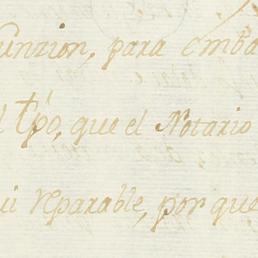 unzion, para emba
l tpo, que el Notario
ui reparable, por que